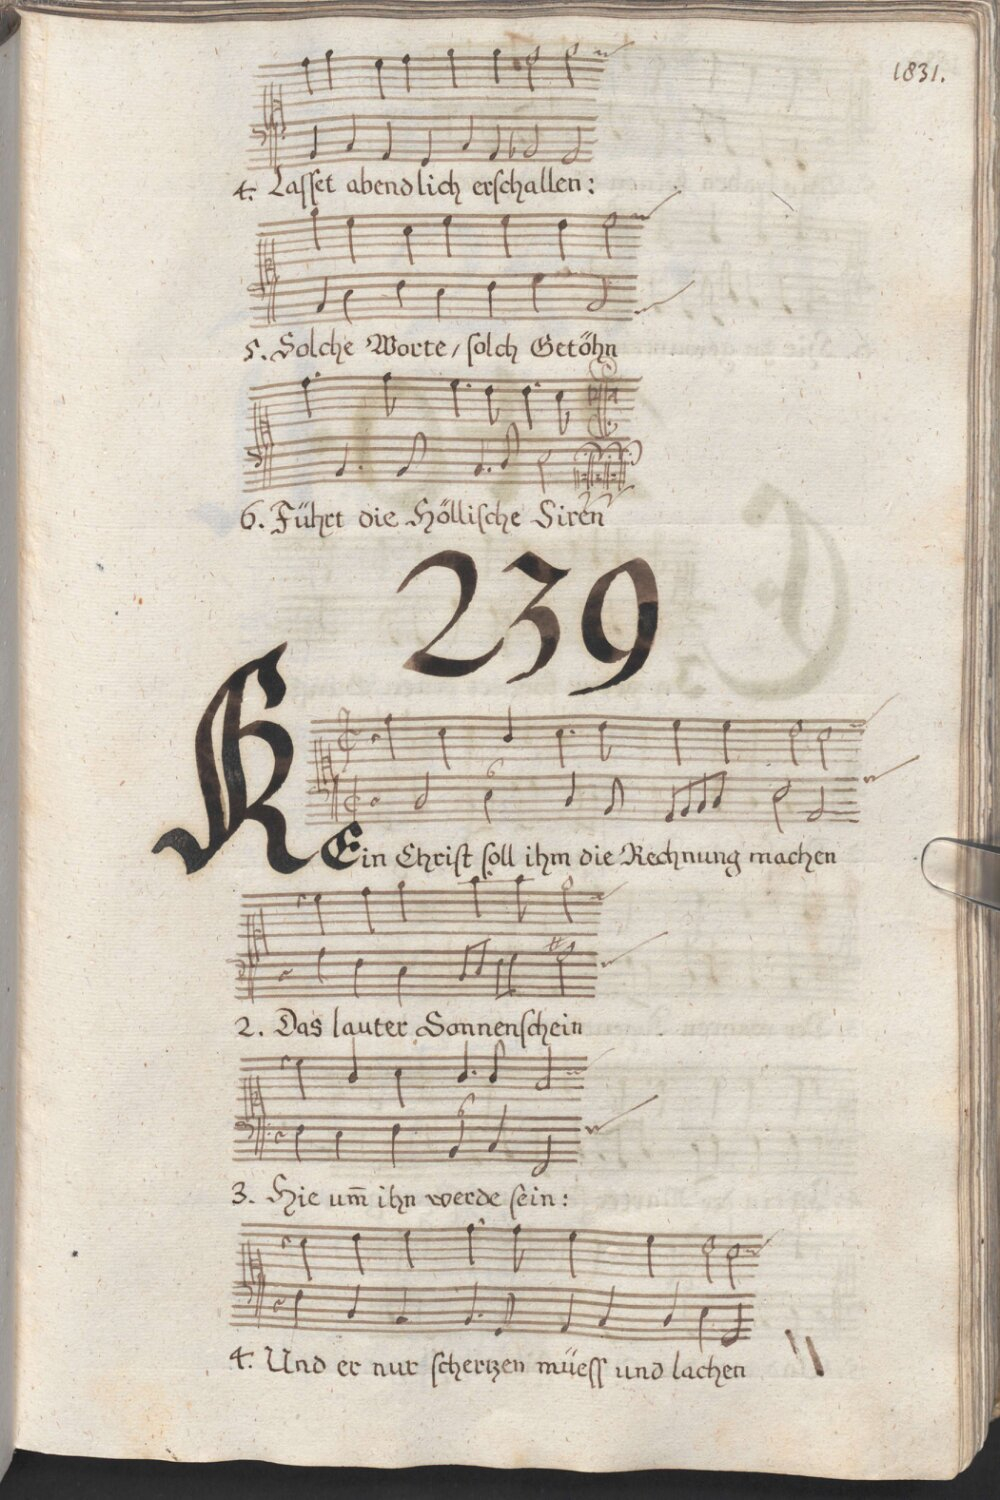 1831.
4. Lasset abendlich erschallen:
5. Solche Worte/ solch Getöhn
6. Führt die Höllische Siren
239
KEin Christ soll ihm die Rechnung machen
2. Das lauter Sonnenschein
3. Hie um̄ ihn werde sein:
4. Und er nur schertzen müess und lachen